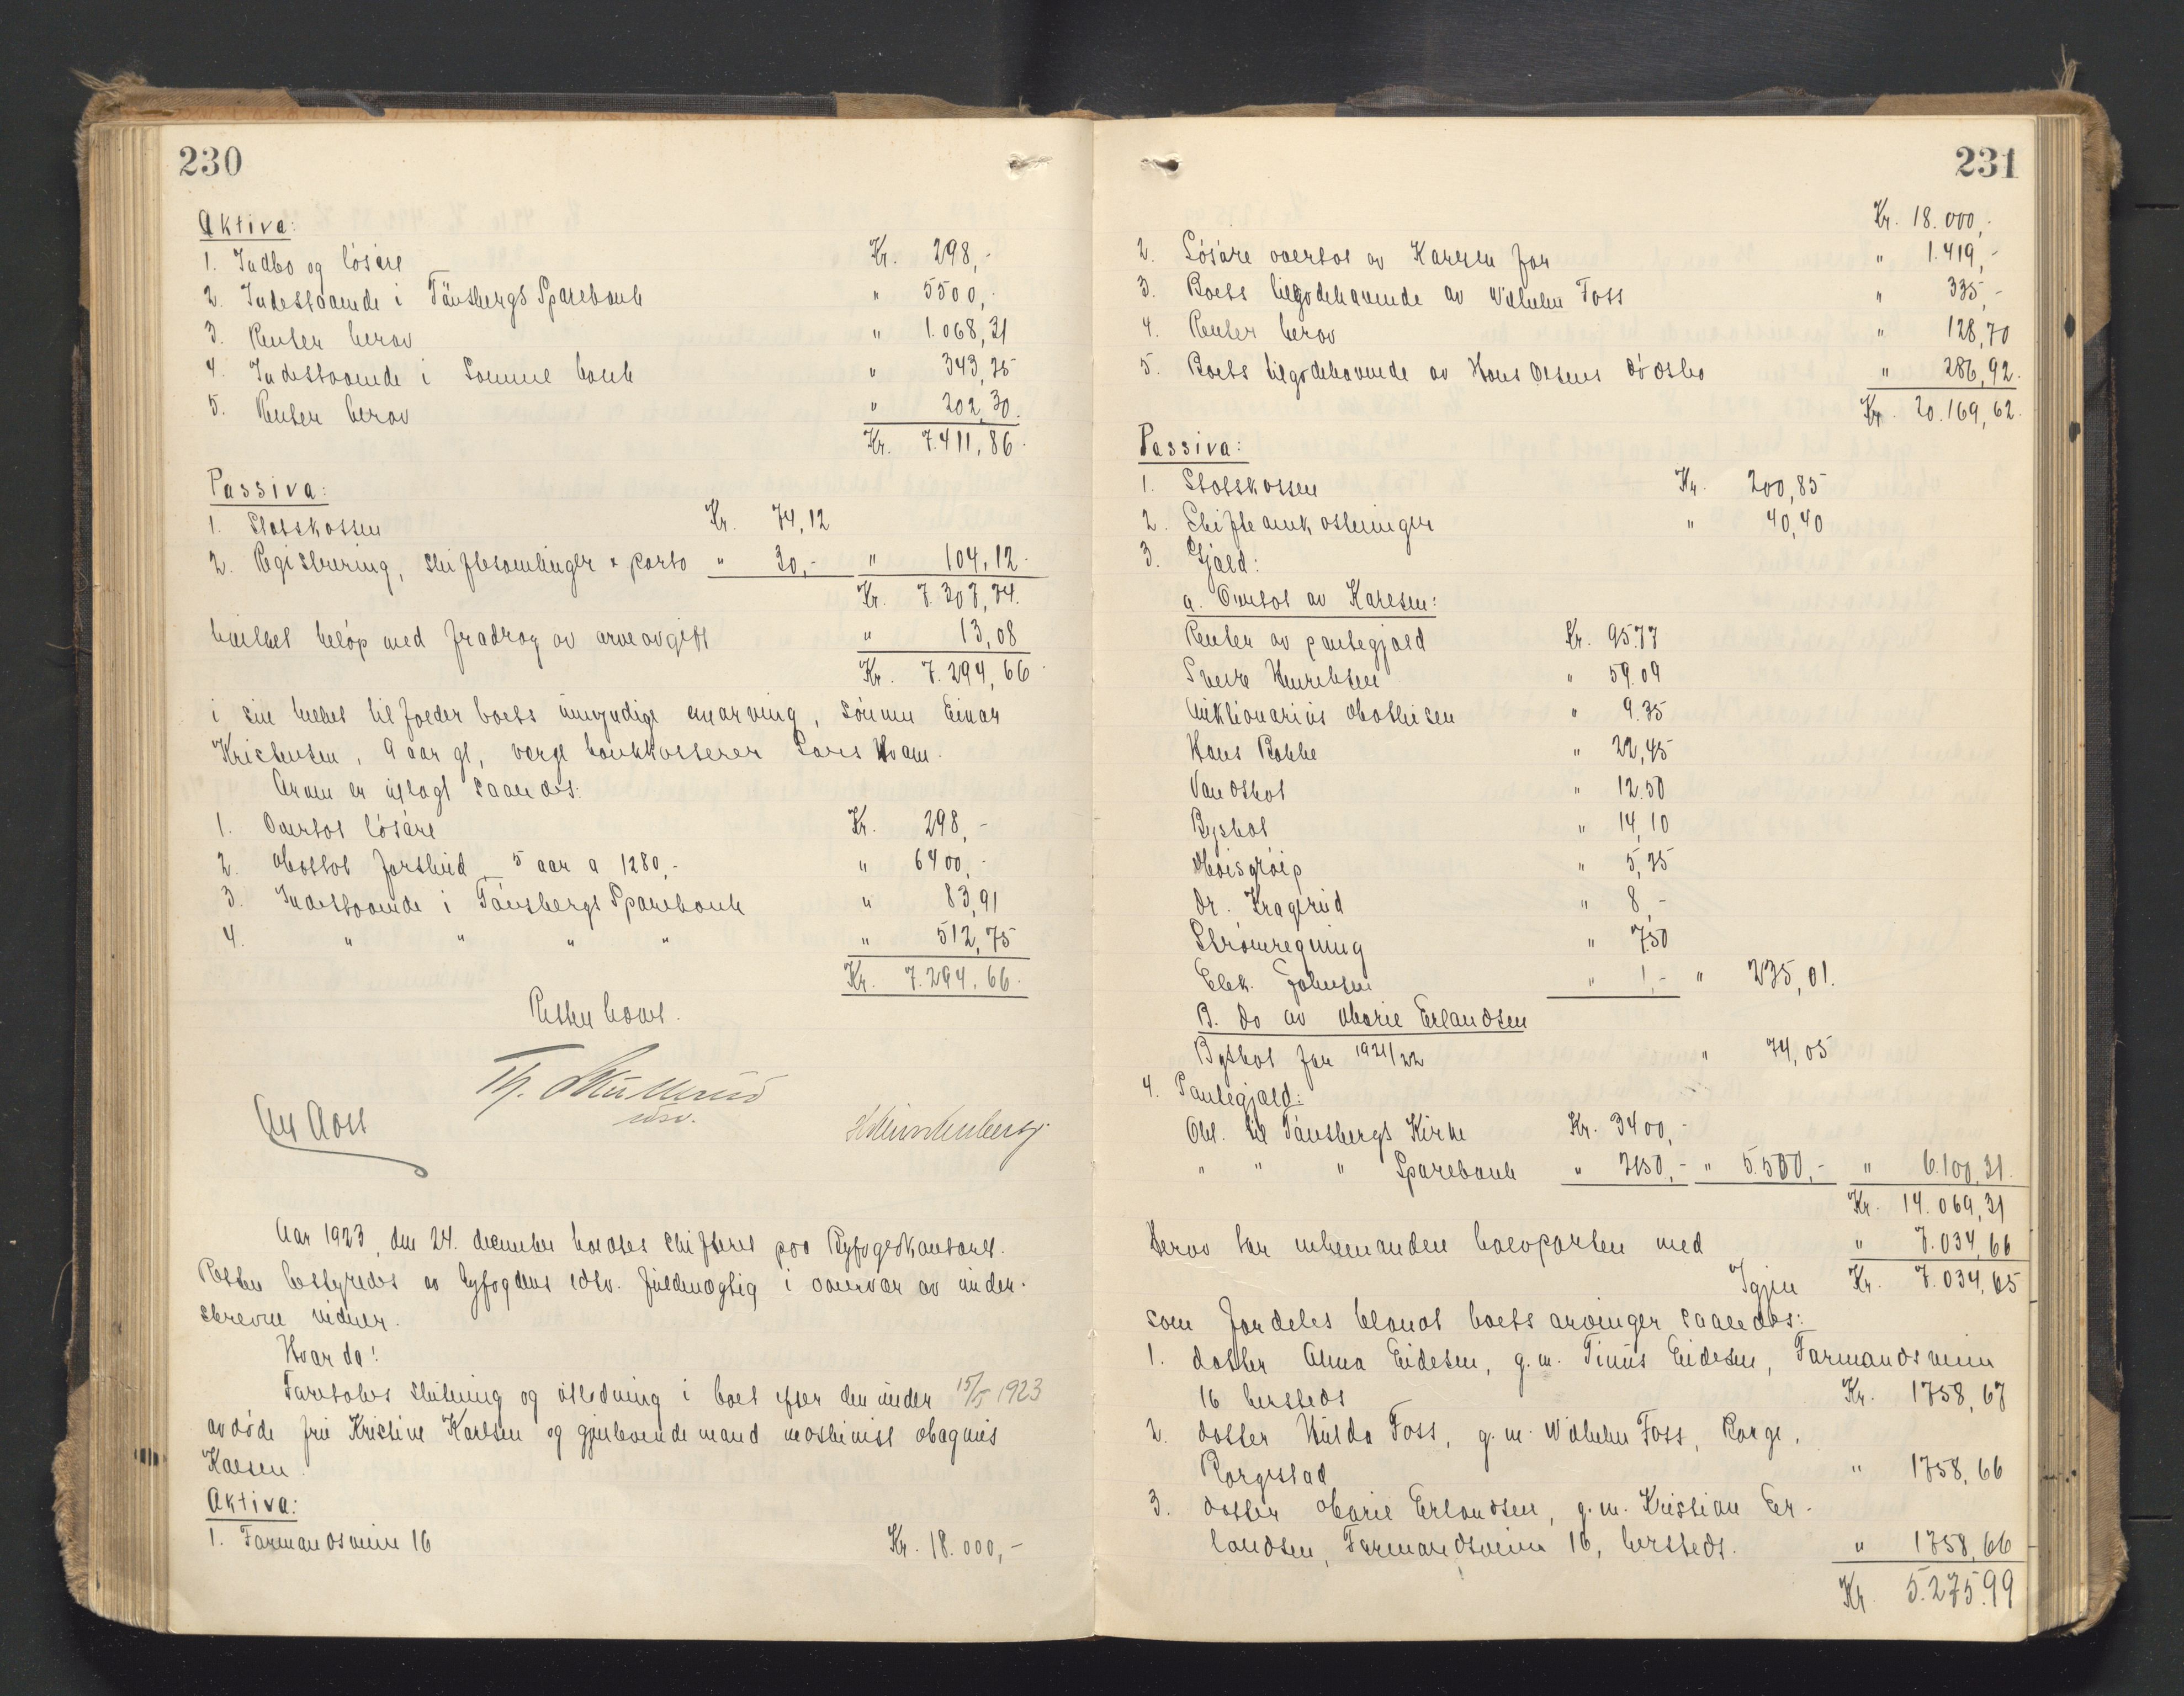 230
Aktiva:
1. Indbo og løsøre Kr. 298,-
2. Indestaaende i Tønsbergs Sparebank " 5500,-
3. Renter herav " 1.068,31
4. Indestaaende i samme bank " 343,25
5. Renter herav " 202,30.
Kr. 7.411,86.
Passiva:
1. Statskassen Kr. 74,12
2. Registrering, skiftesamlinger & porto " 30,- " 104,12.
Kr. 7.307,74.
hvilket beløp med fradrag av arveavgift " 13,08
Kr. 7.294,66.
i sin helhet tilfalder boets umyndige enarving, sønnen Einar
Kristensen, 9 aar gl, verge bankkasserer Lars Kvam.
Arven er utlagt saaledes:
1. Overtat løsøre Kr. 298,-
2. Mottat forskud, 5 aar a 1280,- " 6400,-
3. Indestaaende i Tønsbergs Sparebank " 83,91
4. " " " " " 512,75
Kr. 7.294,66.
Retten hævet.
Aar 1923, den 24. december holdtes skifteret paa Byfogedkontoret.
Retten bestyredes av byfogdens edsv. fuldmægtig i overvær av under-
skrevne vidner.
Hvorda!
Foretokes slutning og utlodning i boet efter den under 15/5 1923
avdøde fru Kristine Karlsen og gjenlevende mand maskinist Magnus
Kalsen.
Aktiva:
1. Farmandsveien 16 Kr. 18.000,-
231
Kr. 18.000,-
2. Løsøre overtat av Karlsen for " 1.419,-
3. Boets tilgodehavende av Vilhelm Foss " 335,-
4. Renter herav " 128,70
5. Boets tilgodehavende av Hans Olsens dødsbo " 286,92.
Kr. 20.169,62.
Passiva:
1. Statskassen Kr. 200,85
2. Skifteomkostninger " 40,40
3. Gjæld:
a. Overtat av Karlsen:
Renter av pantegjæld Kr. 95.77
Sverre Henriksen " 59.09
Auktionarius Mathisen " 9.35
Hans Bakke " 22,45
Vandskat " 12.50
Byskat " 14,10
" 5,25
Dr. Kragerud " 8,-
Strømregning " 7,50
Elek. Johnsen " 1,- " 235,01.
B. do av Marie Erlandsen
Byskat for 1921/22 " 74,05
4. Pantegjæld:
Obl. til Tønsbergs Kirke Kr. 3400,-
" " " Sparebank " 2150,- " 5.550,- " 6.100,31.
Kr. 14.069,31
Herav tar enkemanden boesparten med " 7.034,66
Igjen Kr. 7.034,65
som fordeles blandt boets arvinger saaledes:
1. datter Anna Eidesen, g.m. Tinius Eidesen, Farmandsveien
16 hersteds Kr. 1758,67
2. datter Hulda Foss, g.m. Vilhelm Foss, Borge,
Borgestad " 1758,66
3. datter Marie Erlandsen, g.m. Kristian Er-
landsen, Farmandsveien 16, hersteds. " 1758,66
Kr. 5.275.99